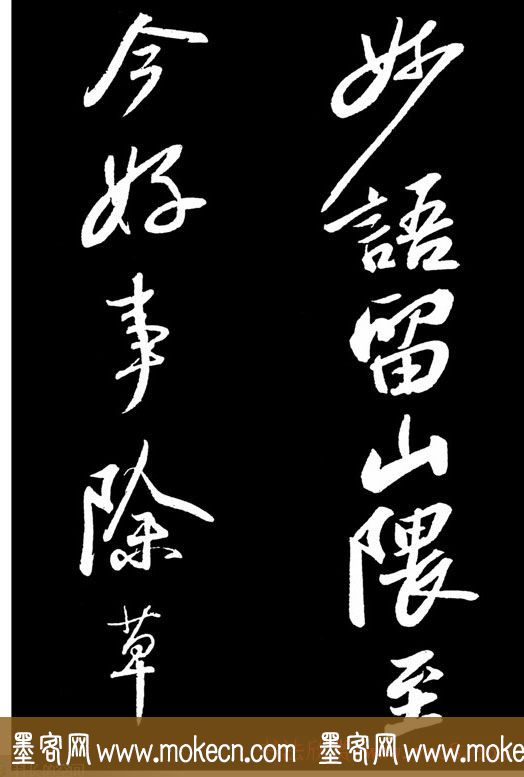 妙語留山隈至
今好事除草
墨客网 www.mokecn.com 墨客网 www.mokecn.com